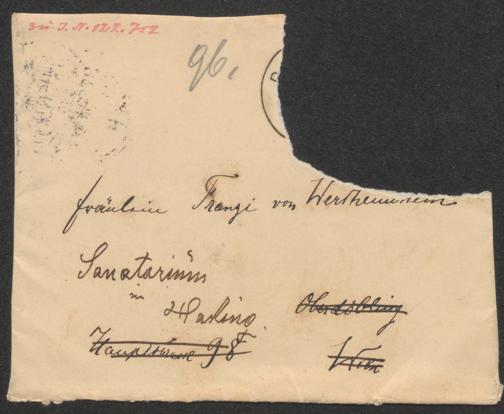 zu I.N. 122.752
96.
Fräulein Franzi von Wertheimstein
Sanatorium
in Hacking.
Oberdöbling
Hauptstrasse 96
Wien